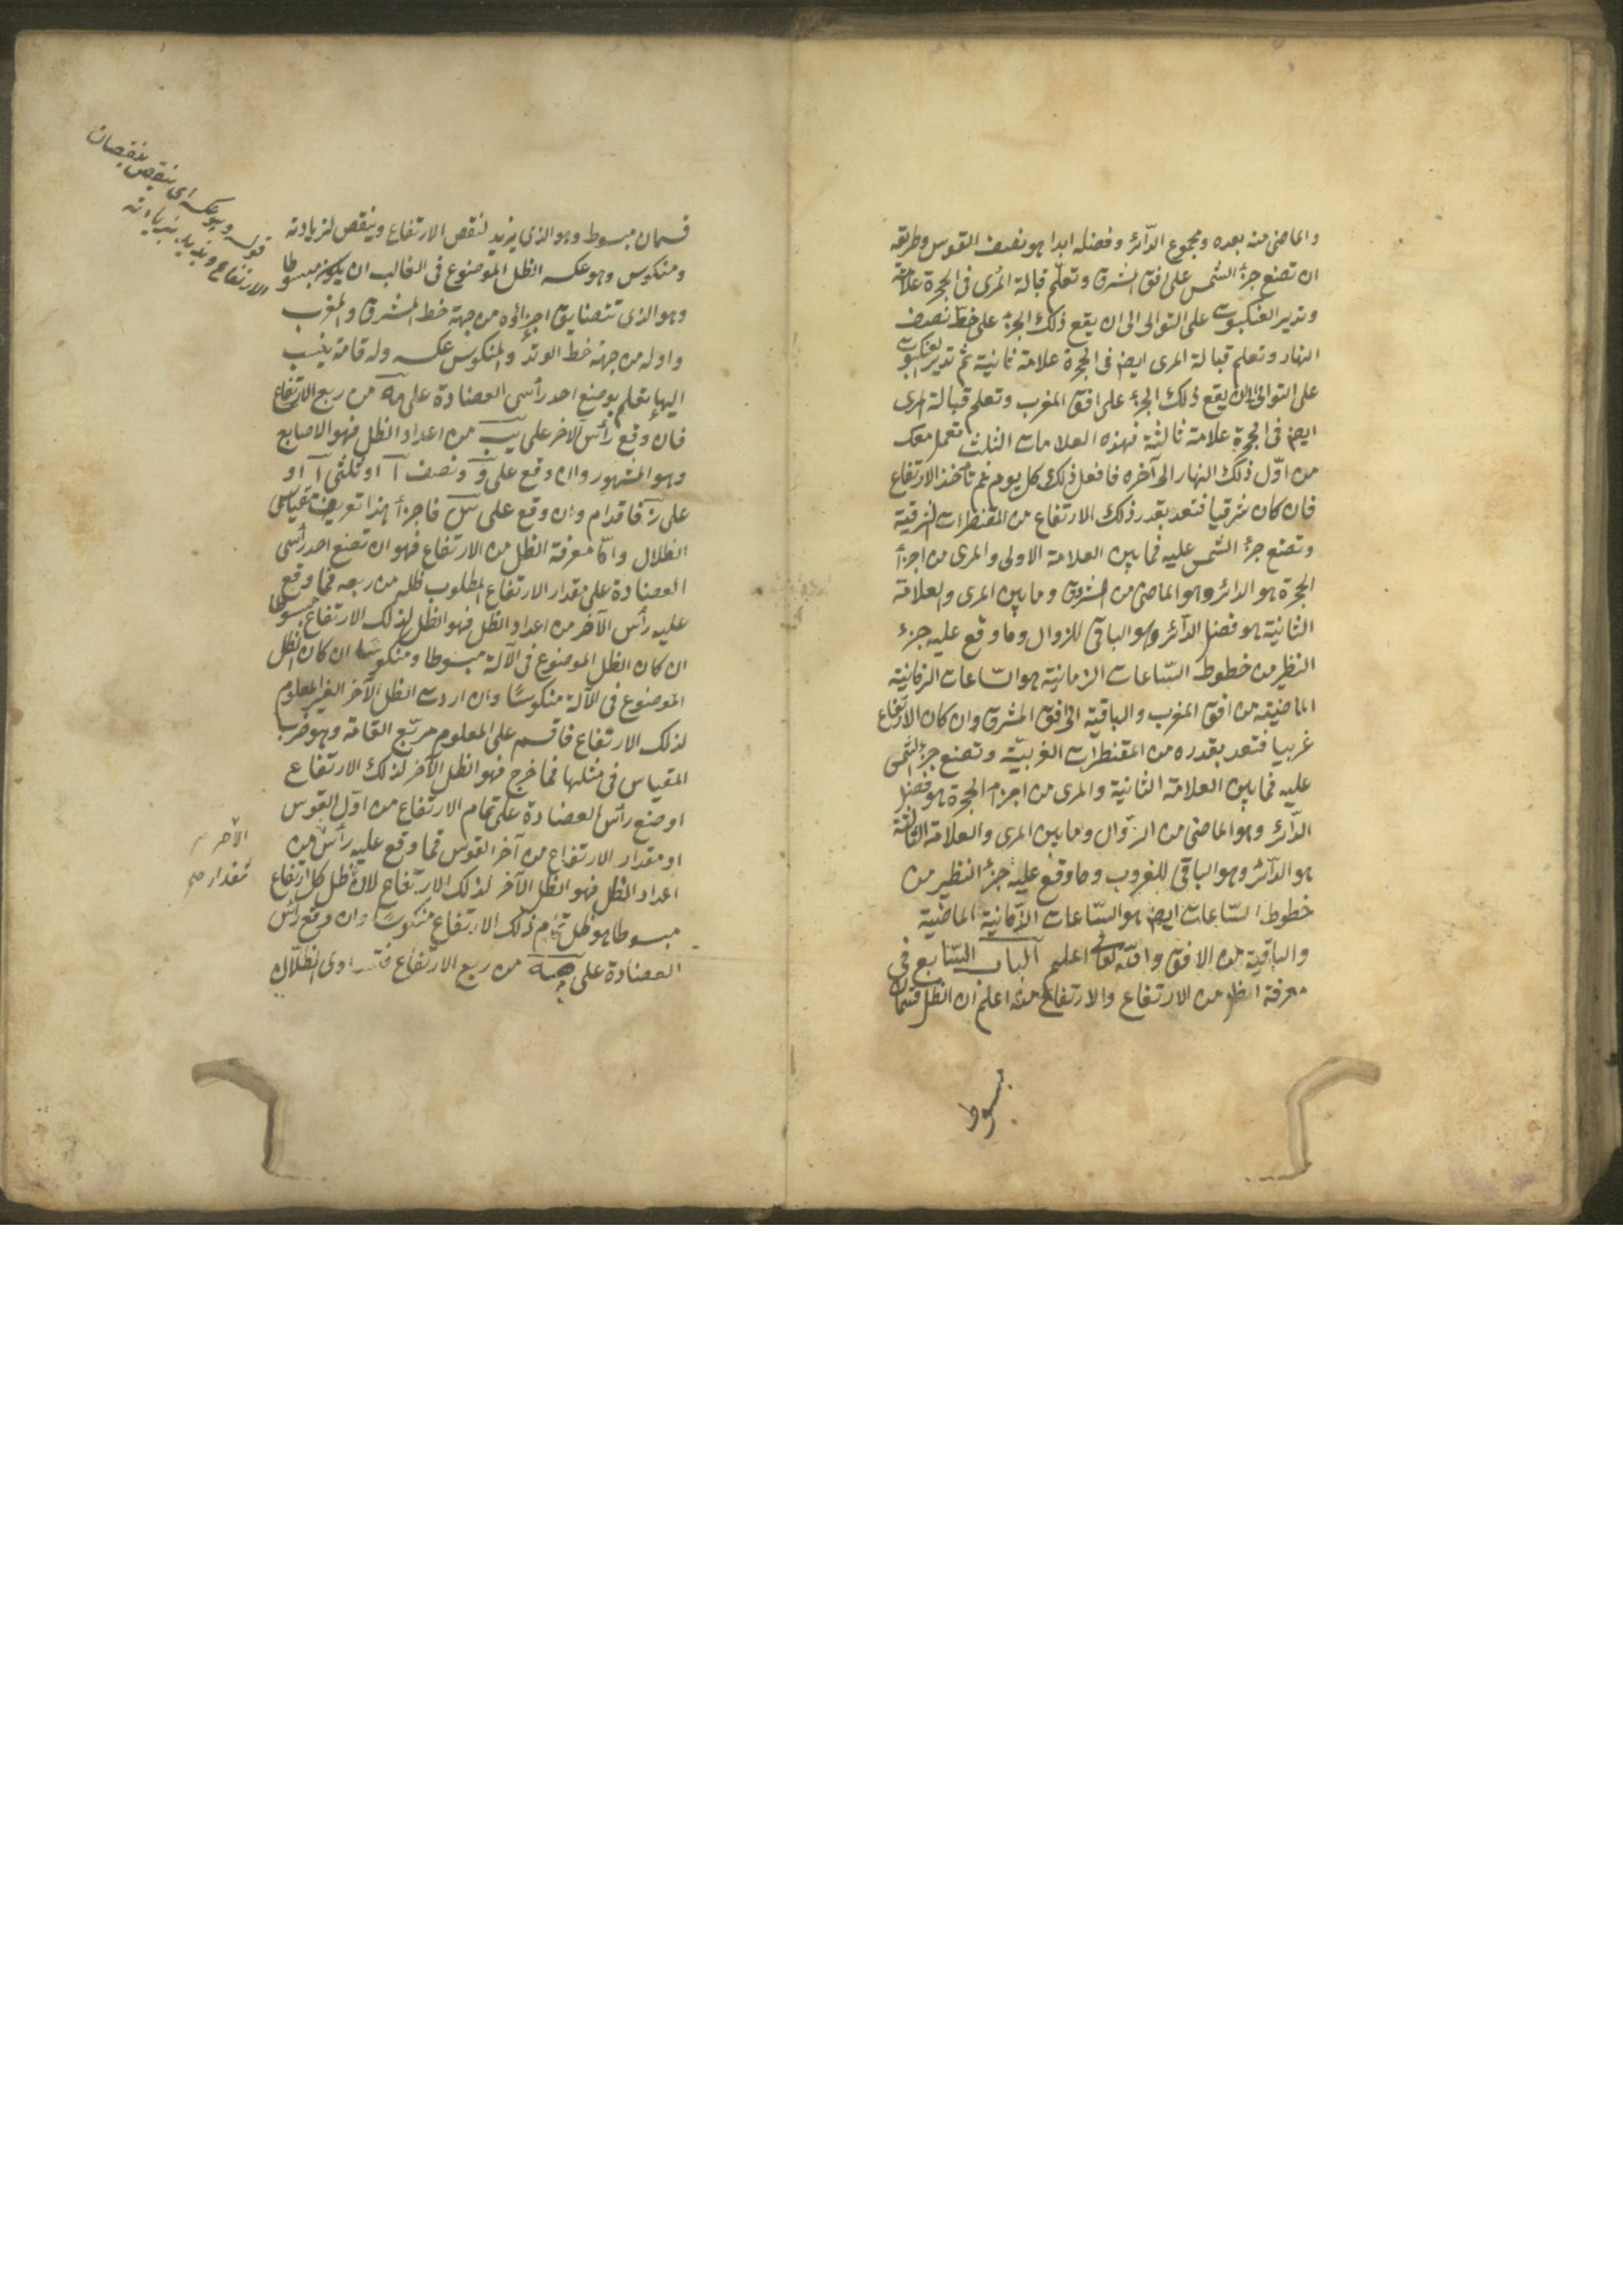 والماضى منه بعده ومجموع الدآئر وفضله ابدا هو نصف القوس وطريقه
ان تضع جزأ الشمس على افق المشرق وتعلّم قبالة المرى فى الحجرة علامة
وتدير العنكبوت على التوالى الى ان يقع ذلك الجزء على خطّ نصف
النهار وتعلم قبالة المرى ايضا فى الحجرة علامة ثانية ثم تدير العنكبوت
على التوالى الى ان يقع ذلك الجزء على افق المغرب وتعلم قبالة المرى
ايضا فى الحجرة علامة ثالثة فهذه العلامات الثلث تعمل معك
من اوّل ذلك النهار الى آخره فافعل ذلك كل يوم ثم تأخذ الارتفاع
فان كان شرقيا فتعد بقدر ذلك الارتفاع من المقنطرات الشرقية
وتضع جزأ الشمس عليه فما بين العلامة الاولى والمرى من اجزأ
الحجرة هو الدائر وهو الماضى من الشروق وما بين المرى والعلامة
الثانية هو فضل الدآئر وهو الباقى للزوال وما وقع عليه جزء
النظير من خطوط السّاعات الزمانية هو السّاعات الزمانية
الماضية من افق المغرب والباقية الى افق المشرق وان كان الارتفاع
غربيا فتعد بقدره من المقنطرات الغربيّة وتضع جزأ الشمس
عليه فما بين العلامة الثانية والمرى من اجزأ الحجرة هو فضل
الدّائر وهو الماضى من الزّوال وما بين المرى والعلامة الثالثة
هو الدآئر وهو الباقى للغروب وما وقع عليه جزأ النظير من
خطوط السّاعات ايضا هو السّاعات الزّمانية الماضية
والباقية من الافق واللّه تعالى اعلم الباب السّابع فى
معرفة الظل من الارتفاع والارتفاع منه اعلم ان الظل قسمان
مبسوط
قسمان مبسوط وهو الذى يزيد لنقص الارتفاع وينقص لزيادته
ومنكوس وهو عكسه الظل الموضوع فى الغالب ان يكون مبسوطا
وهو الذى تتضايق اجزاؤه من جهة خط المشرق والمغرب
واوله من جهة خط الوتد والمنكوس عكسه وله قامة ينسب
اليها تعلم بوضع احد رأسى العضادة على مه من ربع الارتفاع
فان وقع رأس الآخر على يب من اعداد الظل فهو الاصابع
وهو المشهور وان وقع على و ونصف آ او ثلثى آ او
على ز فاقدام وان وقع على س فاجزأ هذا تعريف مقياس
الظلال وامّا معرفة الظل من الارتفاع فهو ان تضع احد رأسى
العضادة على مقدار الارتفاع المطلوب ظله من ربعه فما وقع
عليه رأس الآخر من اعداد الظل فهو الظل لذلك الارتفاع مبسوطا
ان كان الظل الموضوع فى الآلة مبسوطا ومنكوسًا ان كان الظل
الموضوع فى الآلة منكوسًا وان اردت الظل الآخر الغير المعلوم
لذلك الارتفاع فاقسم على المعلوم مربّع القامة وهو ضرب
المقياس فى مثلها فما خرج فهو الظل الآخر لذلك الارتفاع
او ضع رأس العضادة على تمام الارتفاع من اوّل القوس
او مقدار الارتفاع من آخر القوس فما وقع عليه رأس من
اعداد الظل فهو الظل الآخر لذلك الارتفاع لان ظل كل ارتفاع
مبسوطا هو ظل تمام ذلك الارتفاع منكوسًا وان وقع رأس
العضادة على مه من ربع الارتفاع فتساوى الظلّان
قوله وهو عكسه اى ينقص بنقصان
الارتفاع ويزيد بزيادته
الآخر
مقدار صح